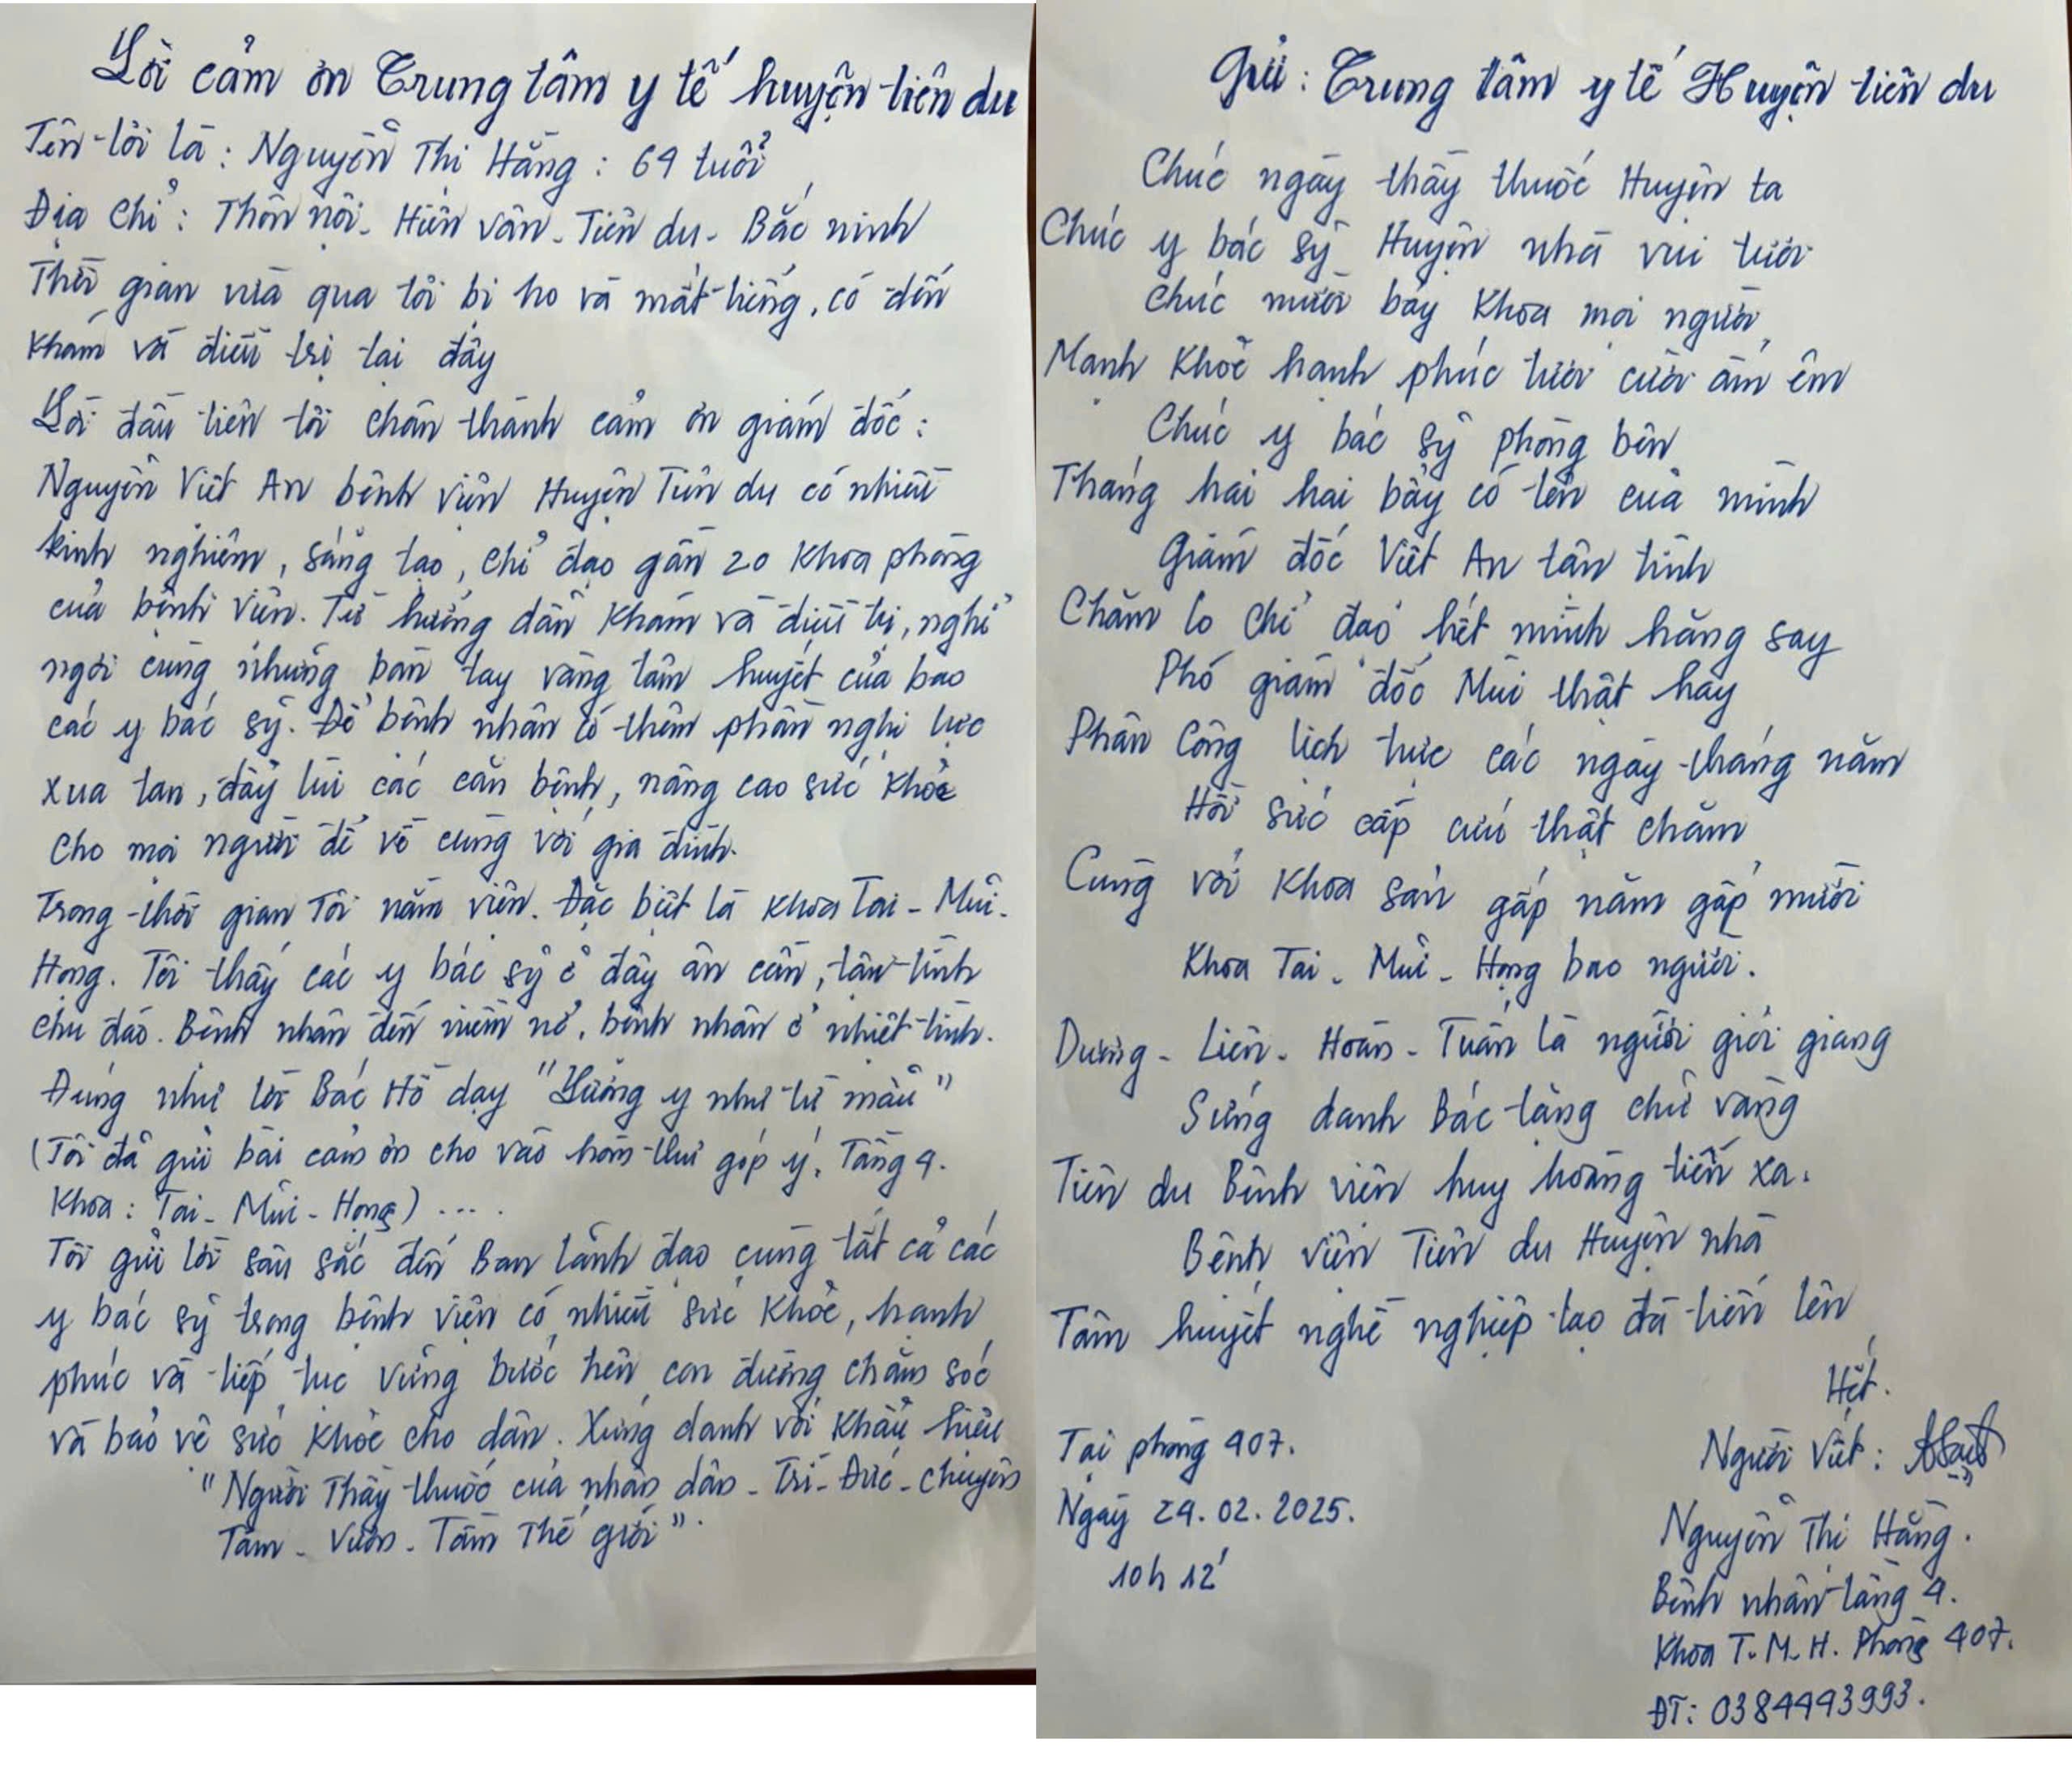 Lời cảm ơn Trung tâm y tế huyện tiên du
Tên tôi là : Nguyễn Thị Hằng : 64 tuổi
Địa chỉ : Thôn nội - Hiên vân - Tiên du - Bắc ninh
Thời gian vừa qua tôi bị ho và mất tiếng, có đến
Khám và điều trị tại đây
Lời đầu tiên tôi chân thành cảm ơn giám đốc :
Nguyễn Viết An bệnh viện Huyện Tiên du có nhiều
kinh nghiệm, sáng tạo, chỉ đạo gần 20 Khoa phòng
của bệnh viện. Từ hướng dẫn Khám và điều trị, nghỉ
ngơi cùng những bàn tay vàng tâm huyết của bao
các y bác sỹ. Để bệnh nhân có thêm phần nghị lực
xua tan, đẩy lùi các căn bệnh, nâng cao sức khỏe
cho mọi người để về cùng với gia đình.
Trong thời gian Tôi nằm viện. Đặc biệt là Khoa Tai - Mũi -
Họng. Tôi thấy các y bác sỹ ở đây ân cần, tận tình
chu đáo. Bệnh nhân đến niềm nở, bệnh nhân ở nhiệt tình.
Đúng như lời Bác Hồ dạy "Lương y như từ mẫu"
(Tôi đã gửi bài cảm ơn cho vào hòm thư góp ý. Tầng 4.
Khoa : Tai - Mũi - Họng) ....
Tôi gửi lời sâu sắc đến Ban lãnh đạo cùng tất cả các
y bác sỹ trong bệnh viện có nhiều sức khỏe, hạnh
phúc và tiếp tục vững bước trên con đường chăm sóc
và bảo vệ sức khỏe cho dân. Xứng danh với Khẩu hiệu
"Người Thầy thuốc của nhân dân - Trí - Đức - chuyên
Tâm - Vươn - Tầm Thế giới".
Gửi : Trung tâm y tế Huyện tiên du
Chúc ngày thầy thuốc Huyện ta
Chúc y bác sỹ Huyện nhà vui tươi
Chúc mười bảy Khoa mọi người
Mạnh Khỏe hạnh phúc tươi cười ấm êm
Chúc y bác sỹ phòng bên
Tháng hai hai bảy có tên của mình
Giám đốc Viết An tận tình
Chăm lo chỉ đạo hết mình hăng say
Phó giám đốc Mùi thật hay
Phân Công lịch trực các ngày tháng năm
Hồi sức cấp cứu thật chăm
Cùng với Khoa sản gấp năm gấp mười
Khoa Tai - Mũi - Họng bao người.
Dương - Liên - Hoàn - Tuấn là người giỏi giang
Sứng danh Bác tặng chữ vàng
Tiên du Bệnh viện huy hoàng tiến xa.
Bệnh viện Tiên du Huyện nhà
Tâm huyết nghề nghiệp tạo đà tiến lên
Hết.
Tại phòng 407.
Người Viết :
Ngày 24.02.2025.
Nguyễn Thị Hằng.
10h 12'
Bệnh nhân tầng 4.
Khoa T-M-H. Phòng 407.
ĐT: 0384443993.